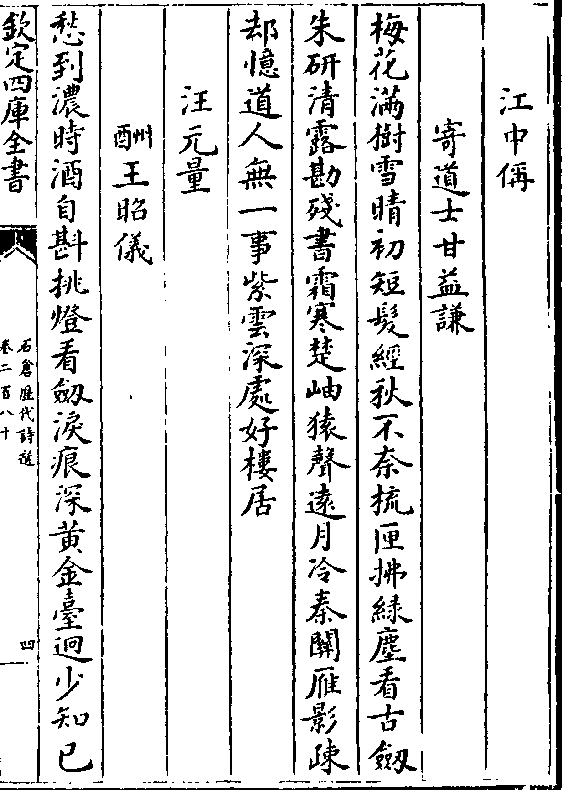 江巾偁
寄道士甘益謙
梅花滿樹雪晴初短髮經秋不奈梳匣拂緑塵看古劒
朱研清露勘殘書霜寒楚岫猿聲遠月冷秦關雁影疎
却憶道人無一事紫雲深處好樓居
汪元量
酬王昭儀
愁到濃時酒自斟挑燈看劒淚痕深黃金臺迥少知已
欽定四庫全書
石倉歷代詩選
卷二百八十
四